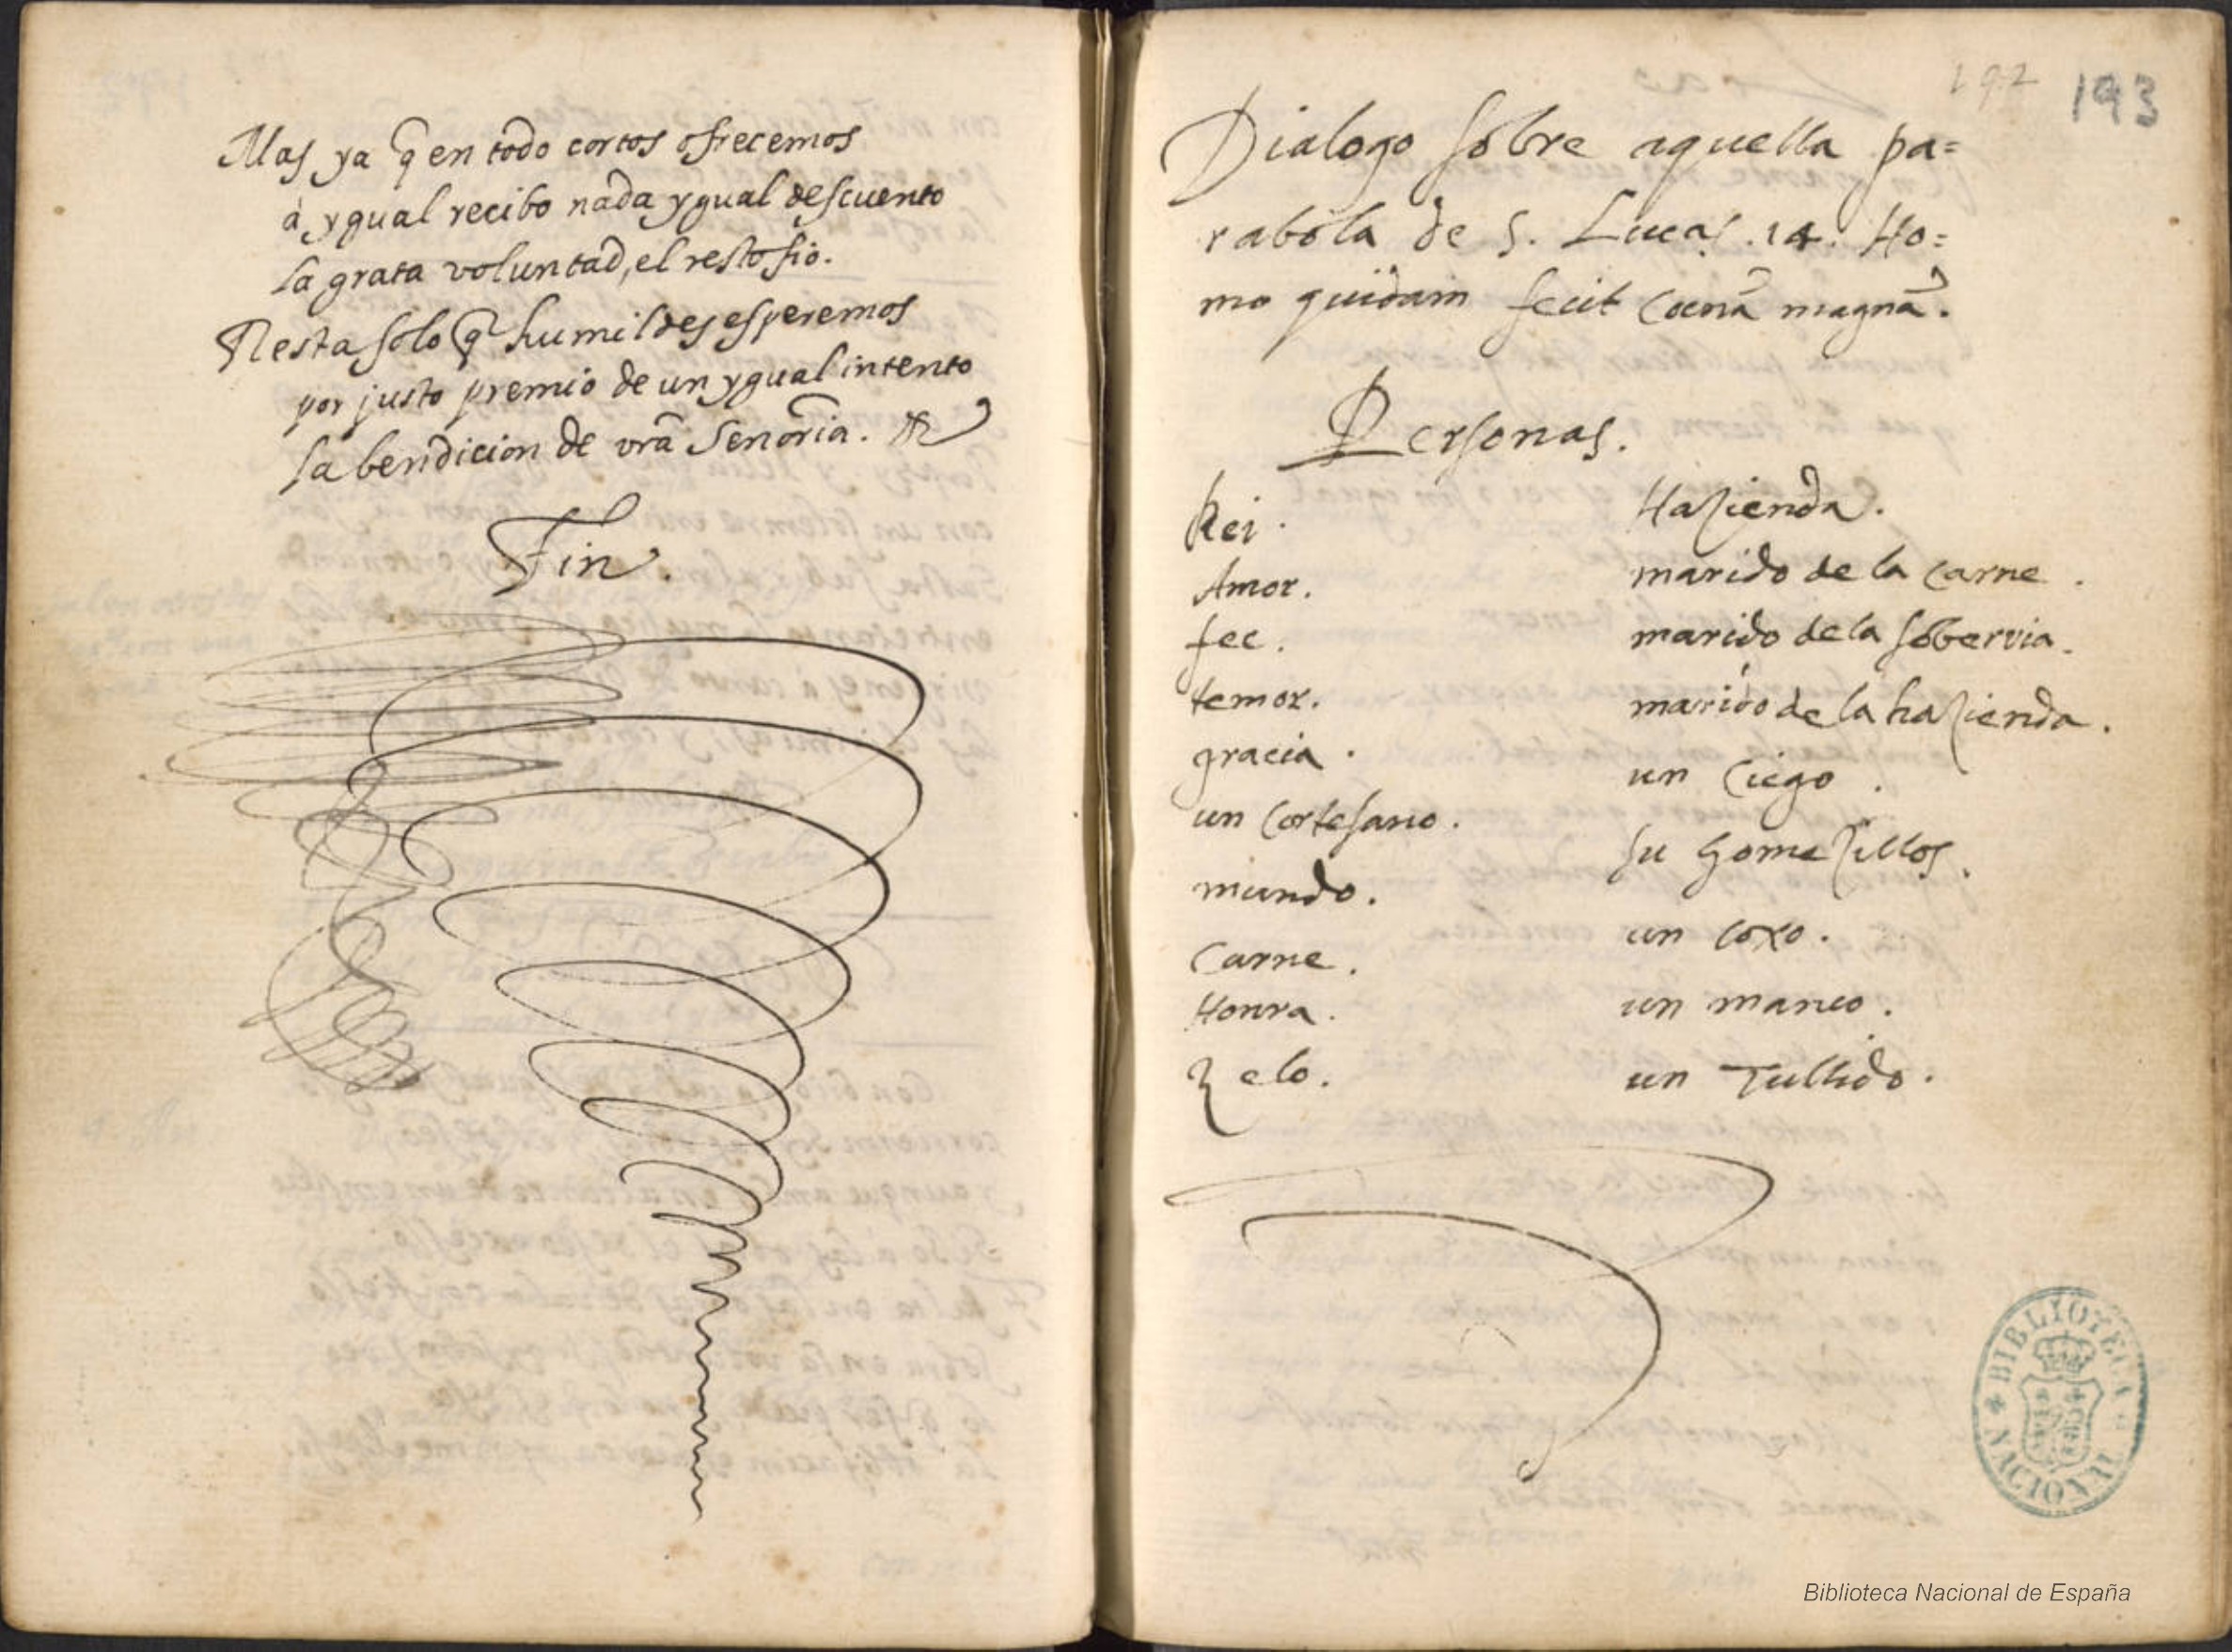 Mas ya q̃ en todo cortos ofrecemos
à ygual recibo nada ygual descuento
la grata voluntad, el resto fio.
Resta solo q̃ humildes esperemos
por justo premio de un ygual intento
la bendicion de vrã Senoria.
Fin.
192 193
Dialogo sobre aquella pa=
rabola de S. Lucas .14. Ho=
mo quidam fecit Coenã magnã.
Personas.
Rei.
Amor.
fee.
temor.
gracia.
un Cortesano.
mundo.
Carne.
Honra.
Zelo.
Hazienda.
marido de la Carne.
marido de la sobervia.
marido de la hazienda.
un Ciego.
su gomezillos.
un coxo.
un manco.
un Tullido.
BIBLIOTECA NACIONAL
Biblioteca Nacional de España